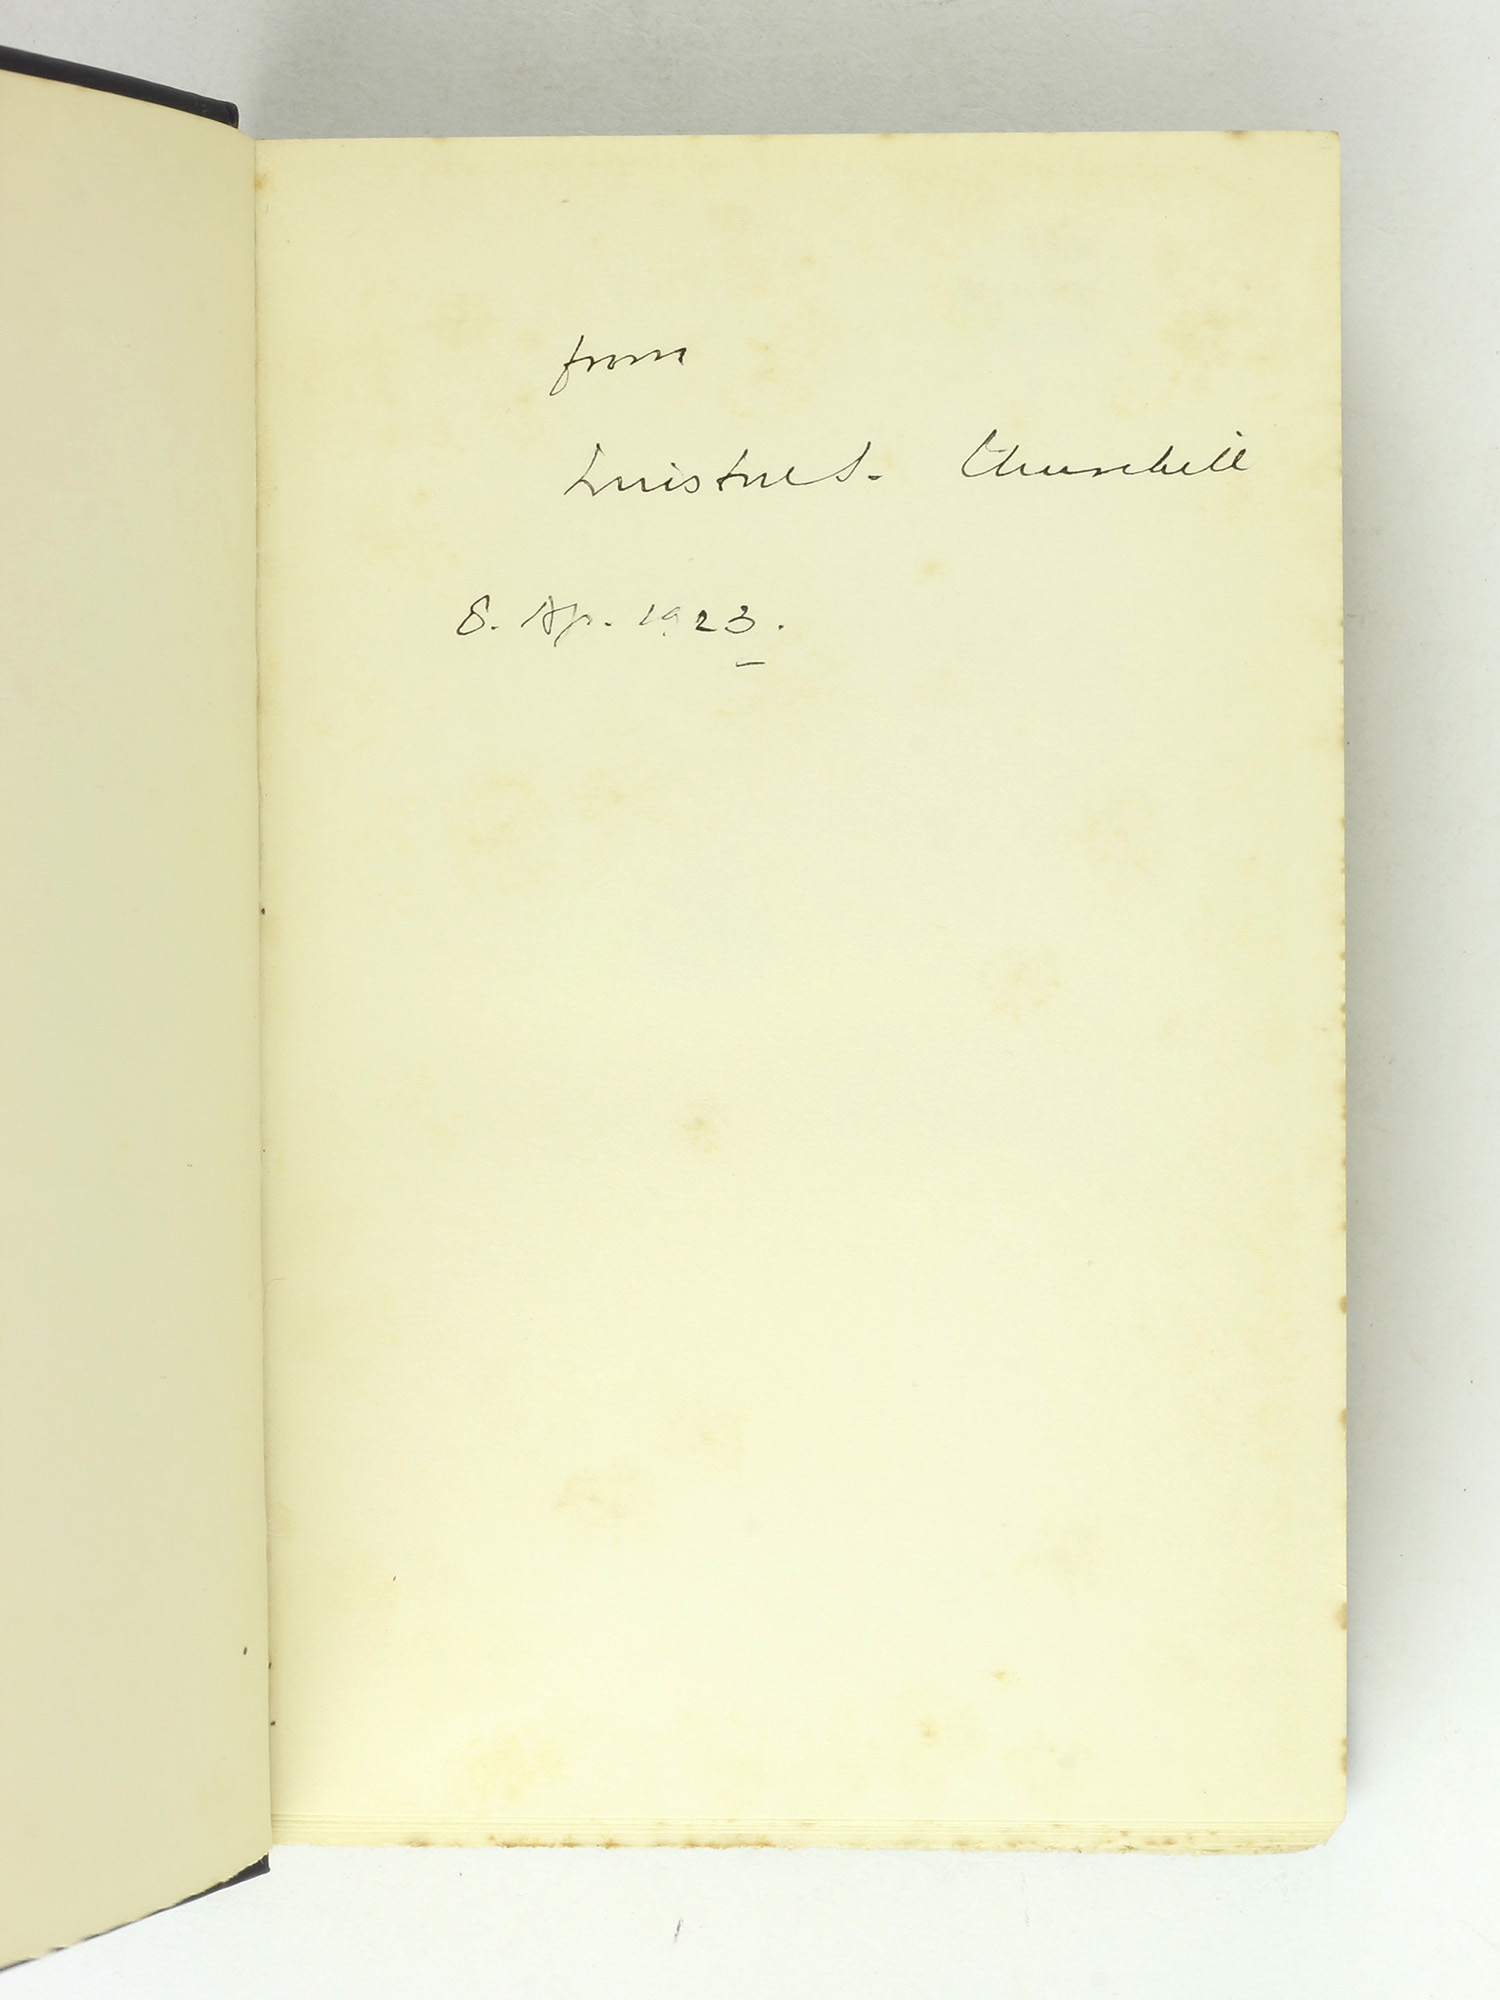 from
Winston S. Churchill
8. Ap. 1923.